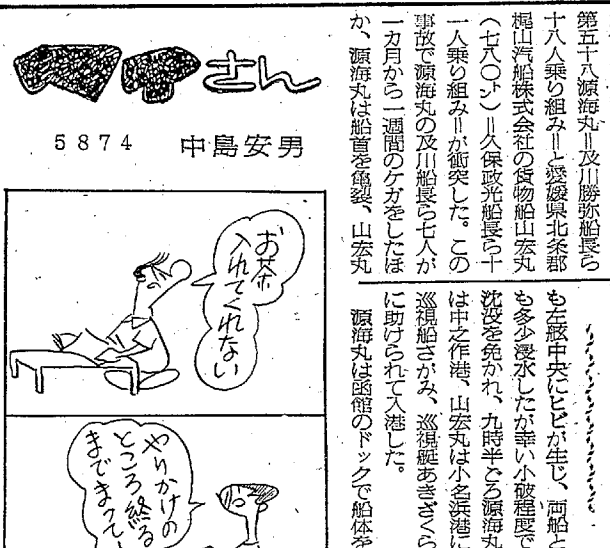 第五十八源海丸=及川勝弥船長ら
十八人乗り組み=と愛媛県北条郡
梶山汽船株式会社の貨物船山宏丸
(七八〇㌧)=久保政光船長ら十
一人乗り組み=が衝突した。この
事故で源海丸の及川船長ら七人が
一カ月から一週間のケガをしたほ
か、源海丸は船首を亀裂、山宏丸
も左舷中央にヒビが生じ、両船と
も多少浸水したが幸い小破程度で
沈没を免かれ、九時半ごろ源海丸
は中之作港、山宏丸は小名浜港に
巡視船さがみ、巡視艇あきざくら
に助けられて入港した。
源海丸は函館のドックで船体を
さん
5874 中島安男
お茶
入れてくれない
やりかけの
ところ終る
までまって